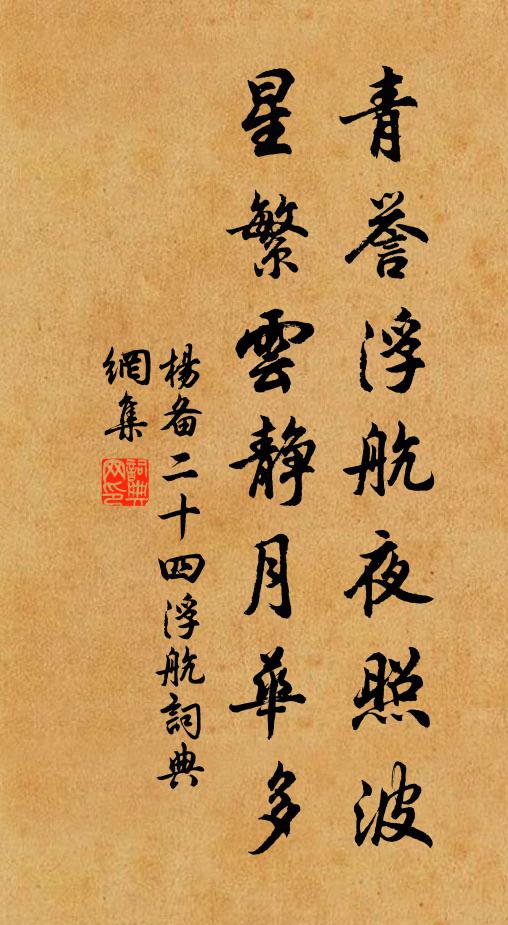 青誉浮航夜照波
星繁雲靜月華多
楊备二十四浮航詞典
網集
詞典
网印